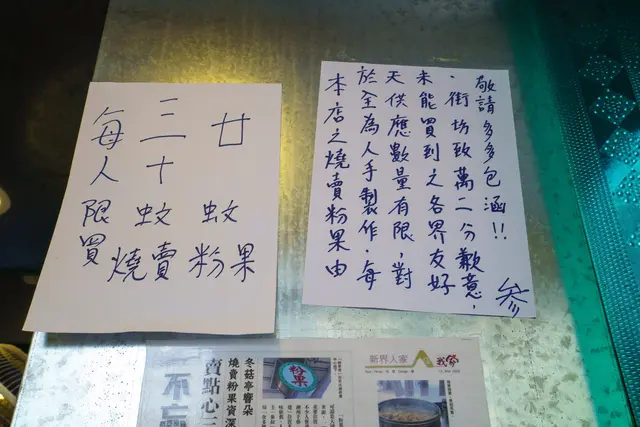 每人限買
三十蚊燒賣
廿蚊粉果
本店之燒賣粉果由
於全為人手製作．每
天供應數量有限，對
未能買到之各界友好
．街坊致萬二分歉意，
敬請多多包涵!!
不忘
賣點心三
燒賣粉果資深
冬菇亭響朵
粉果
新界人家